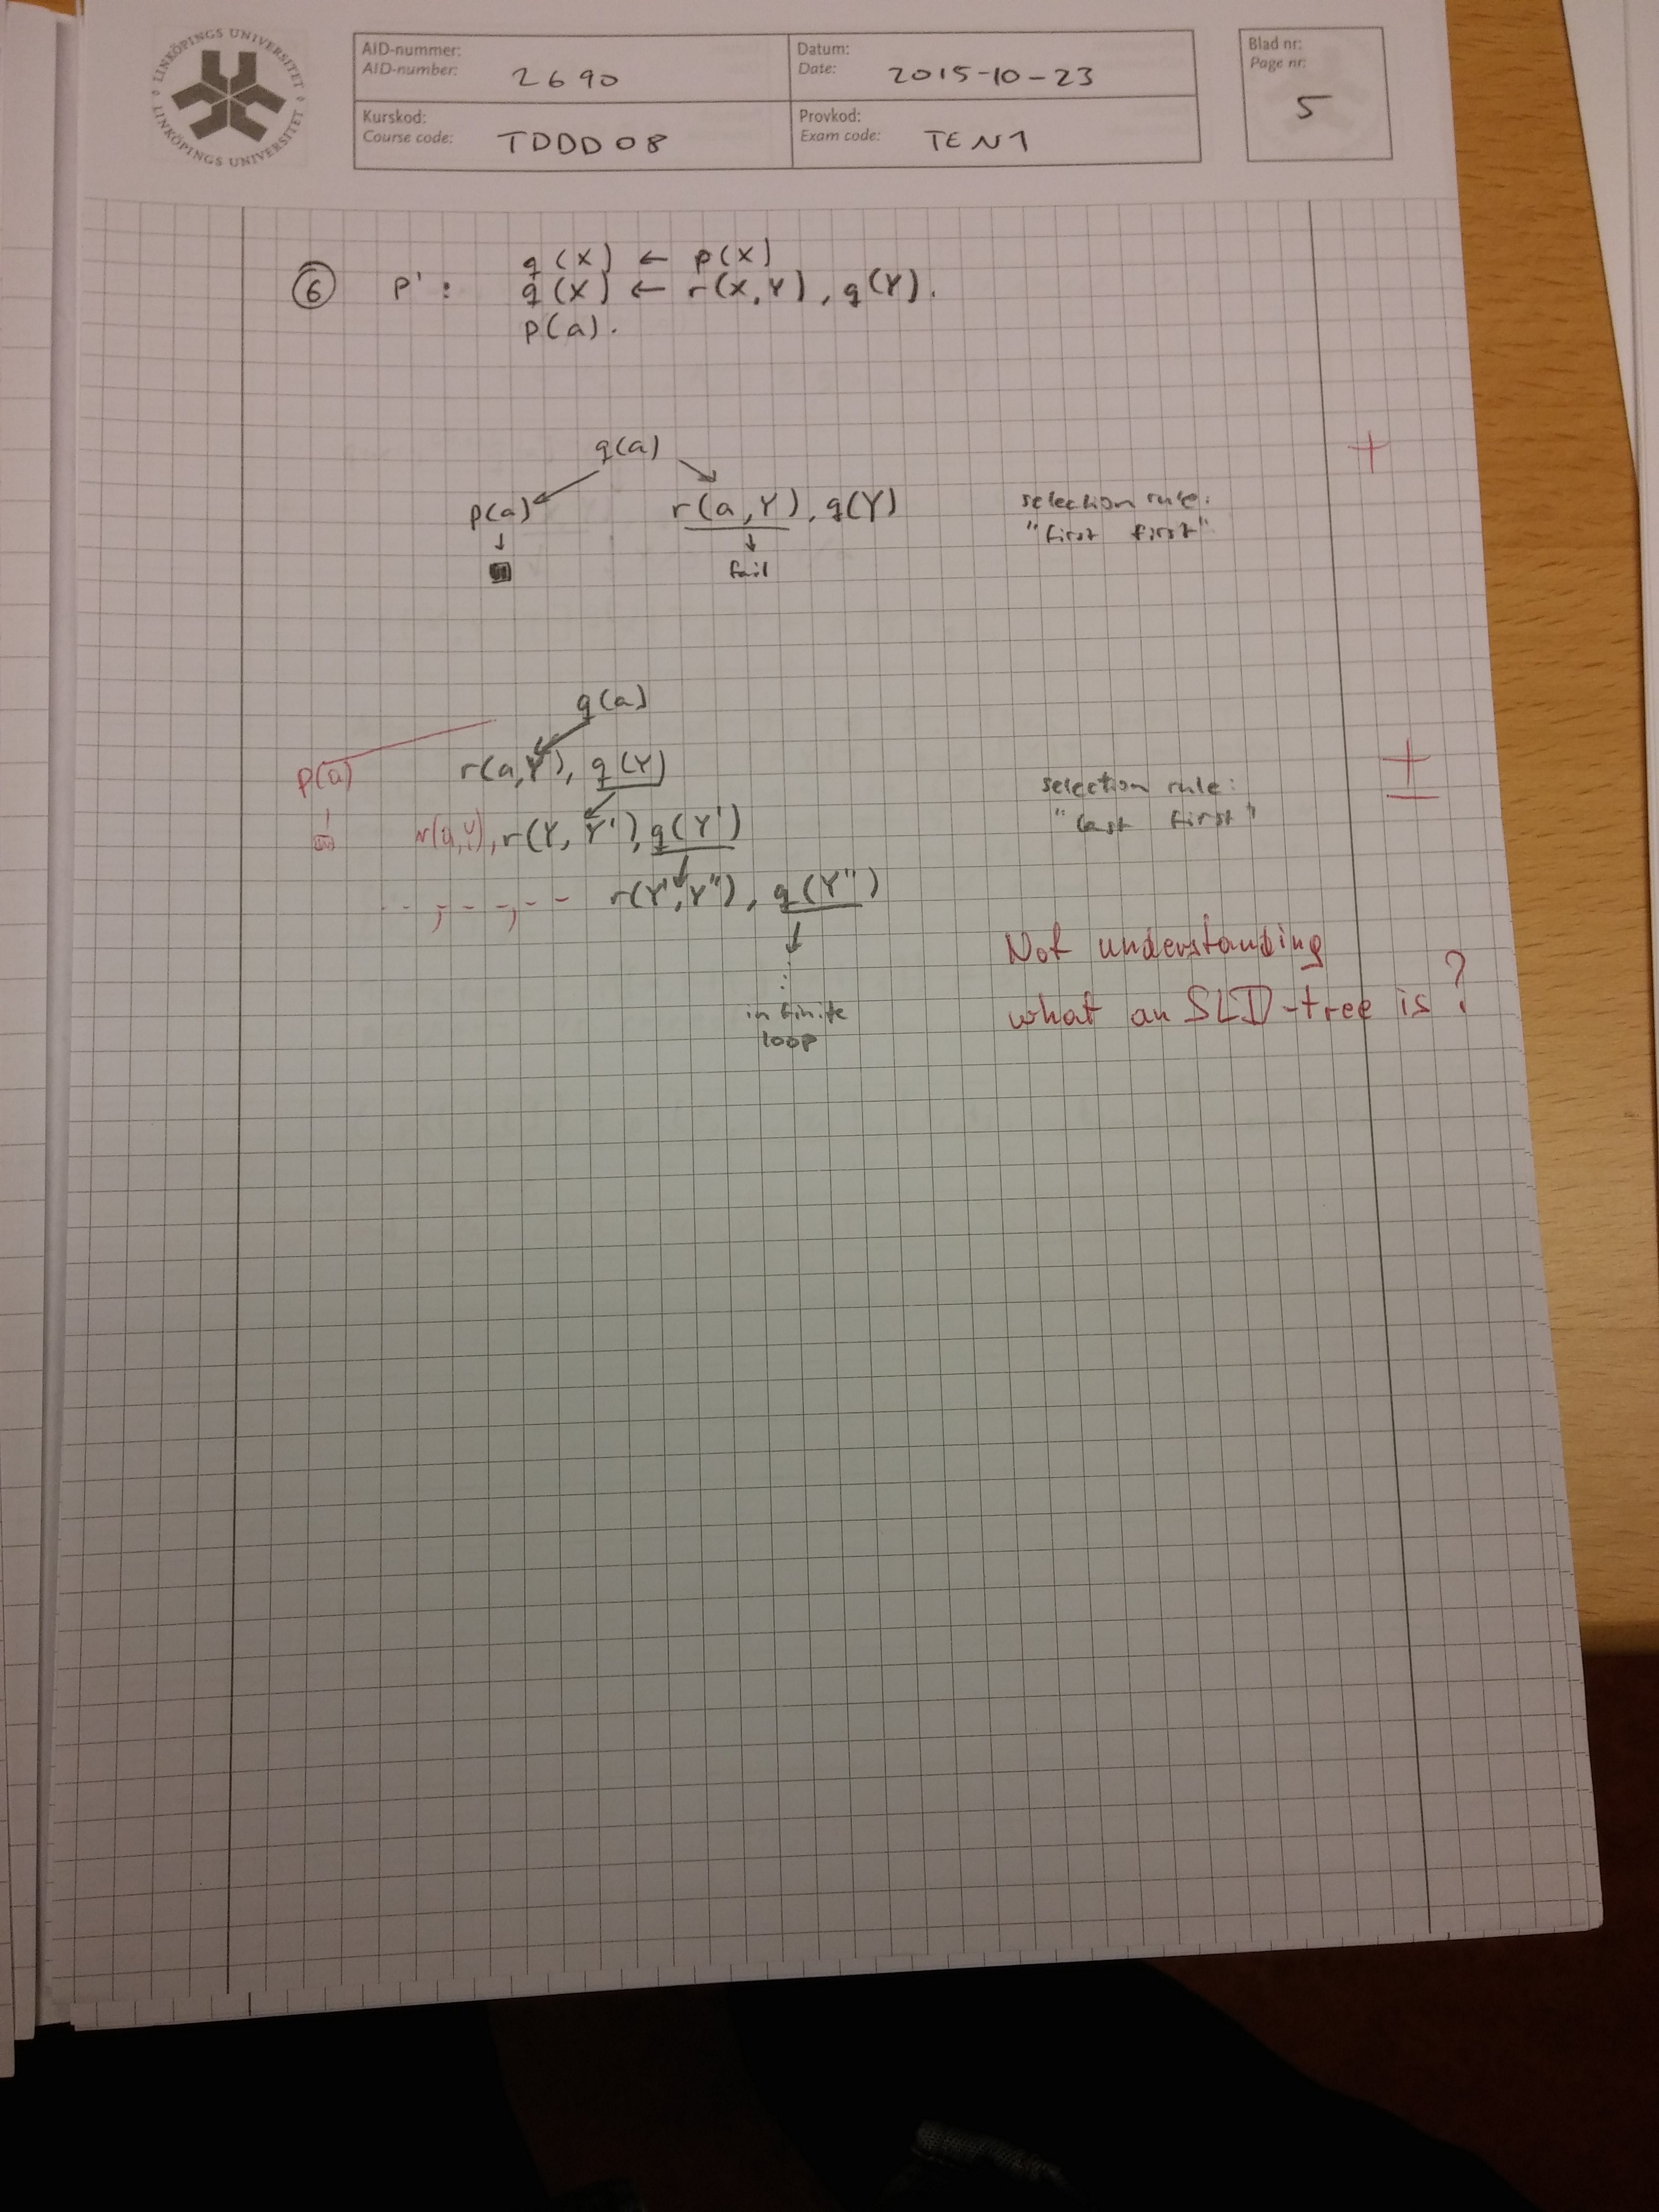 LINKÖPINGS UNIVERSITET
LINKÖPINGS UNIVERSITET
AID-nummer:
AID-number: 2690
Datum:
Date: 2015-10-23
Blad nr:
Page nr:
5
Kurskod:
Course code: TDDD08
Provkod:
Exam code: TEN1
q(X) ← p(X)
6 P': q(X) ← r(X,Y), q(Y).
p(a).
+
q(a)
p(a) r(a,Y), q(Y) selection rule:
"first first"
fail
q(a)
p(a) r(a,Y), q(Y) selection rule: ±
r(a,Y), r(Y, Y'), q(Y') "last first"
r(Y',Y''), q(Y'')
Not understanding
what an SLD-tree is?
infinite
loop